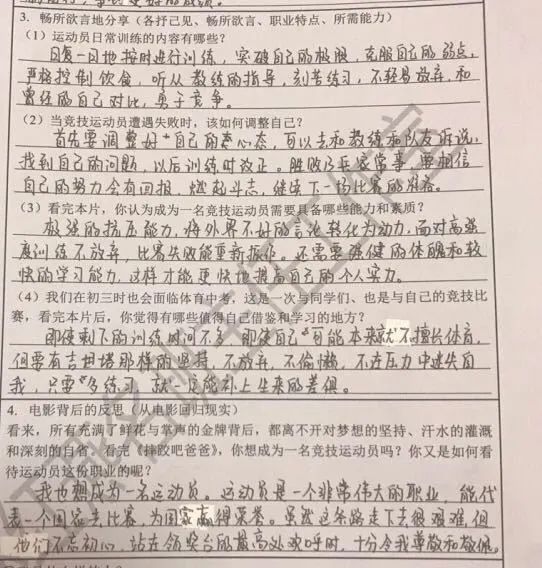 3. 畅所欲言地分享（各抒己见、畅所欲言、职业特点、所需能力）
（1）运动员日常训练的内容有哪些？
日复一日地按时进行训练，突破自己的极限，克服自己的弱点，
严格控制饮食，听从教练的指导，刻苦练习，不轻易放弃，和
曾经的自己对比，勇于竞争。
（2）当竞技运动员遭遇失败时，该如何调整自己？
首先要调整好自己的心态，可以去和教练和队友诉说，
找到自己的问题，以后训练时改正。胜败乃兵家常事，要相信
自己的努力会有回报，燃起斗志，继续下一场比赛的准备。
（3）看完本片，你认为成为一名竞技运动员需要具备哪些能力和素质？
极强的抗压能力，将外界不好的言论转化为动力，面对高强
度训练不放弃，比赛失败能重新振作。还需要强健的体魄和较
快的学习能力，这样才能更快地提高自己的个人实力。
（4）我们在初三时也会面临体育中考，这是一次与同学们、也是与自己的竞技比
赛，看完本片后，你觉得有哪些值得自己借鉴和学习的地方？
即使剩下的训练时间不多，即使自己可能本来就不擅长体育，
但要有吉塔那样的坚持，不放弃，不偷懒，不在压力中迷失自
我，只要多练习，就一定能补上生来的差俱。
4. 电影背后的反思（从电影回归现实）
看来，所有充满了鲜花与掌声的金牌背后，都离不开对梦想的坚持、汗水的灌溉
和深刻的自省。看完《摔跤吧爸爸》，你想成为一名竞技运动员吗？你又是如何看
待运动员这份职业的呢？
我也想成为一名运动员。运动员是一个非常伟大的职业，能代
表一个国家去比赛，为国家赢得荣誉。虽然这条路走下去很艰难，但
他们不忘初心，站在领奖台的最高处欢呼时，十分令我尊敬和敬佩。